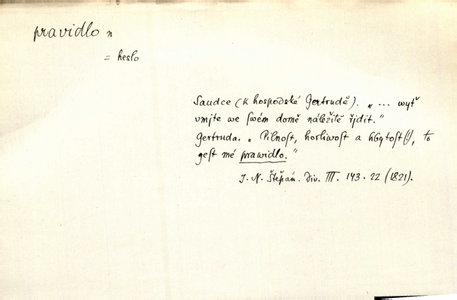 pravidlo n
= heslo
Saudce (k hospodské Gertrudě). „ ... wyť
umjte we swém domě náležitě řjdit."
Gertruda. „Pilnost, horliwost a hbytost(!), to
gest mé prawidlo."
J. N. Štěpán. Div. III. 143. 22 (1821).